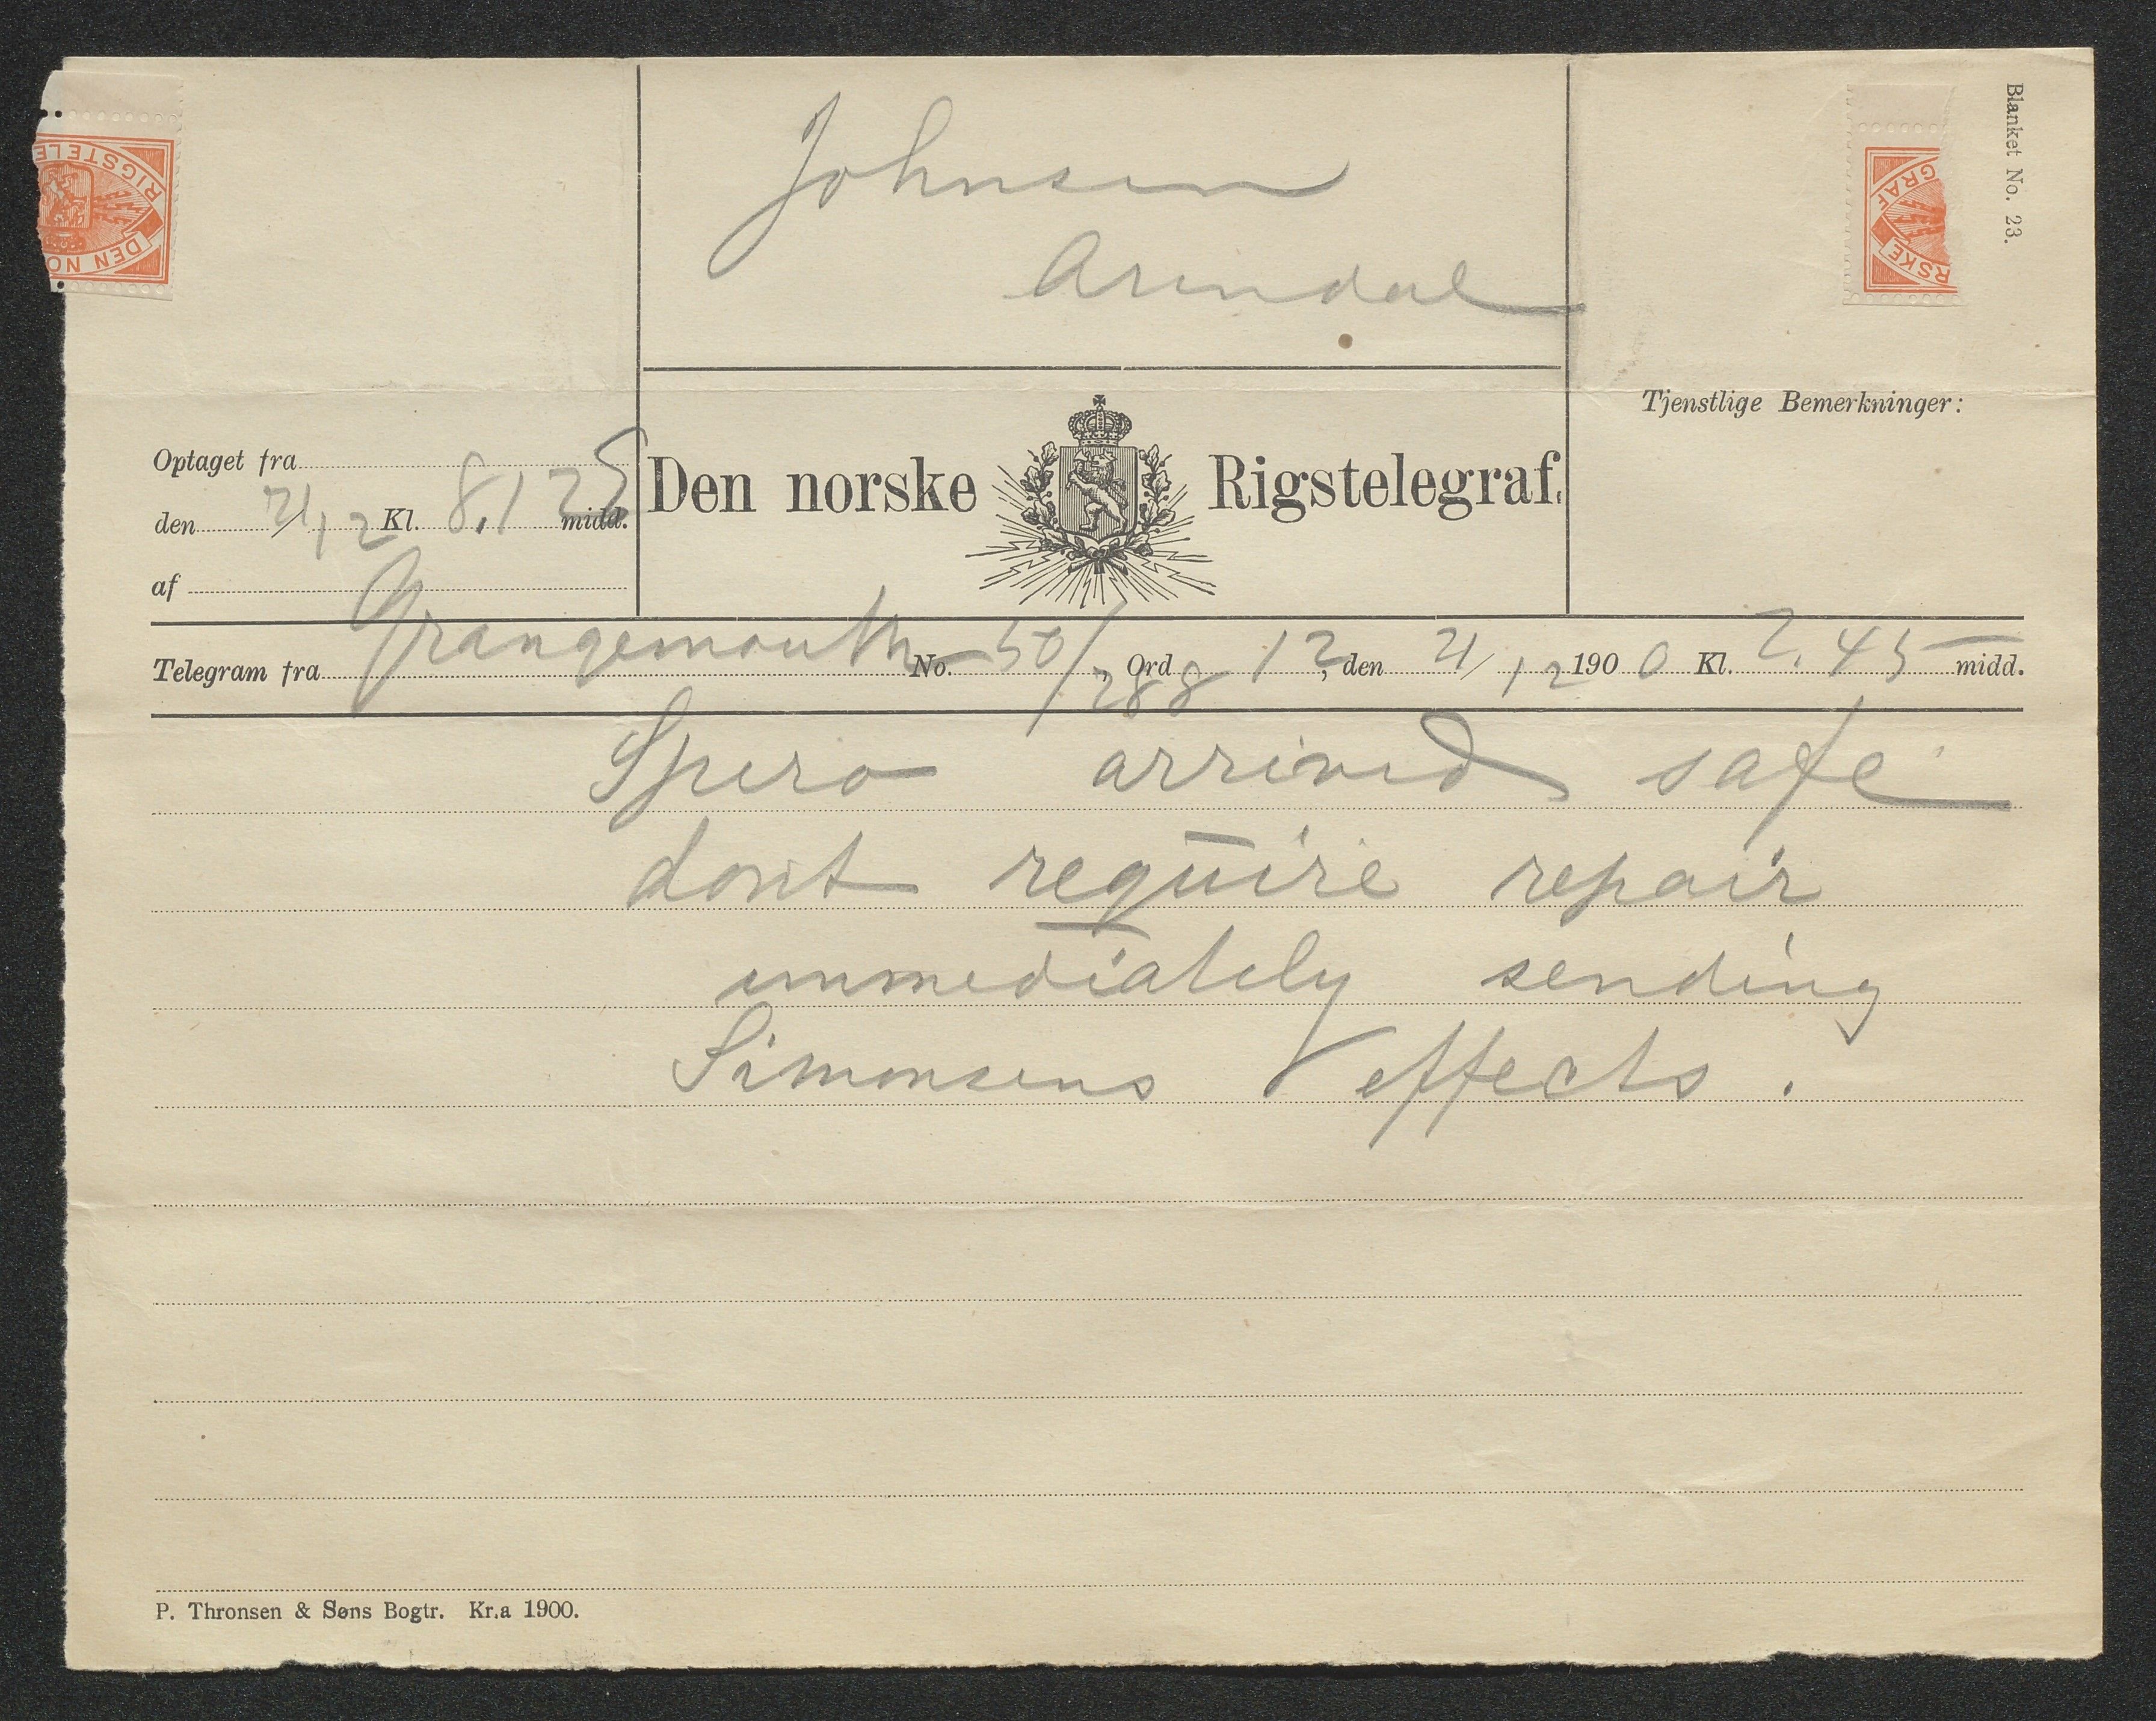 Blanket No. 23.
RIGSTELE
DEN NO
GRAF
RSKE
Johnsen
Arendal
Tjenstlige Bemerkninger:
Optaget fra
den 21/12 Kl. 8.125 midd.
af
Den norske Rigstelegraf.
Telegram fra Grangemouth No. 50/288, Ord 12, den 21/12 1900 Kl. 2.45 midd.
Spero arrived safe
dont require repair
immediately sending
Simonsens effects.
P. Thronsen & Søns Bogtr. Kr.a 1900.